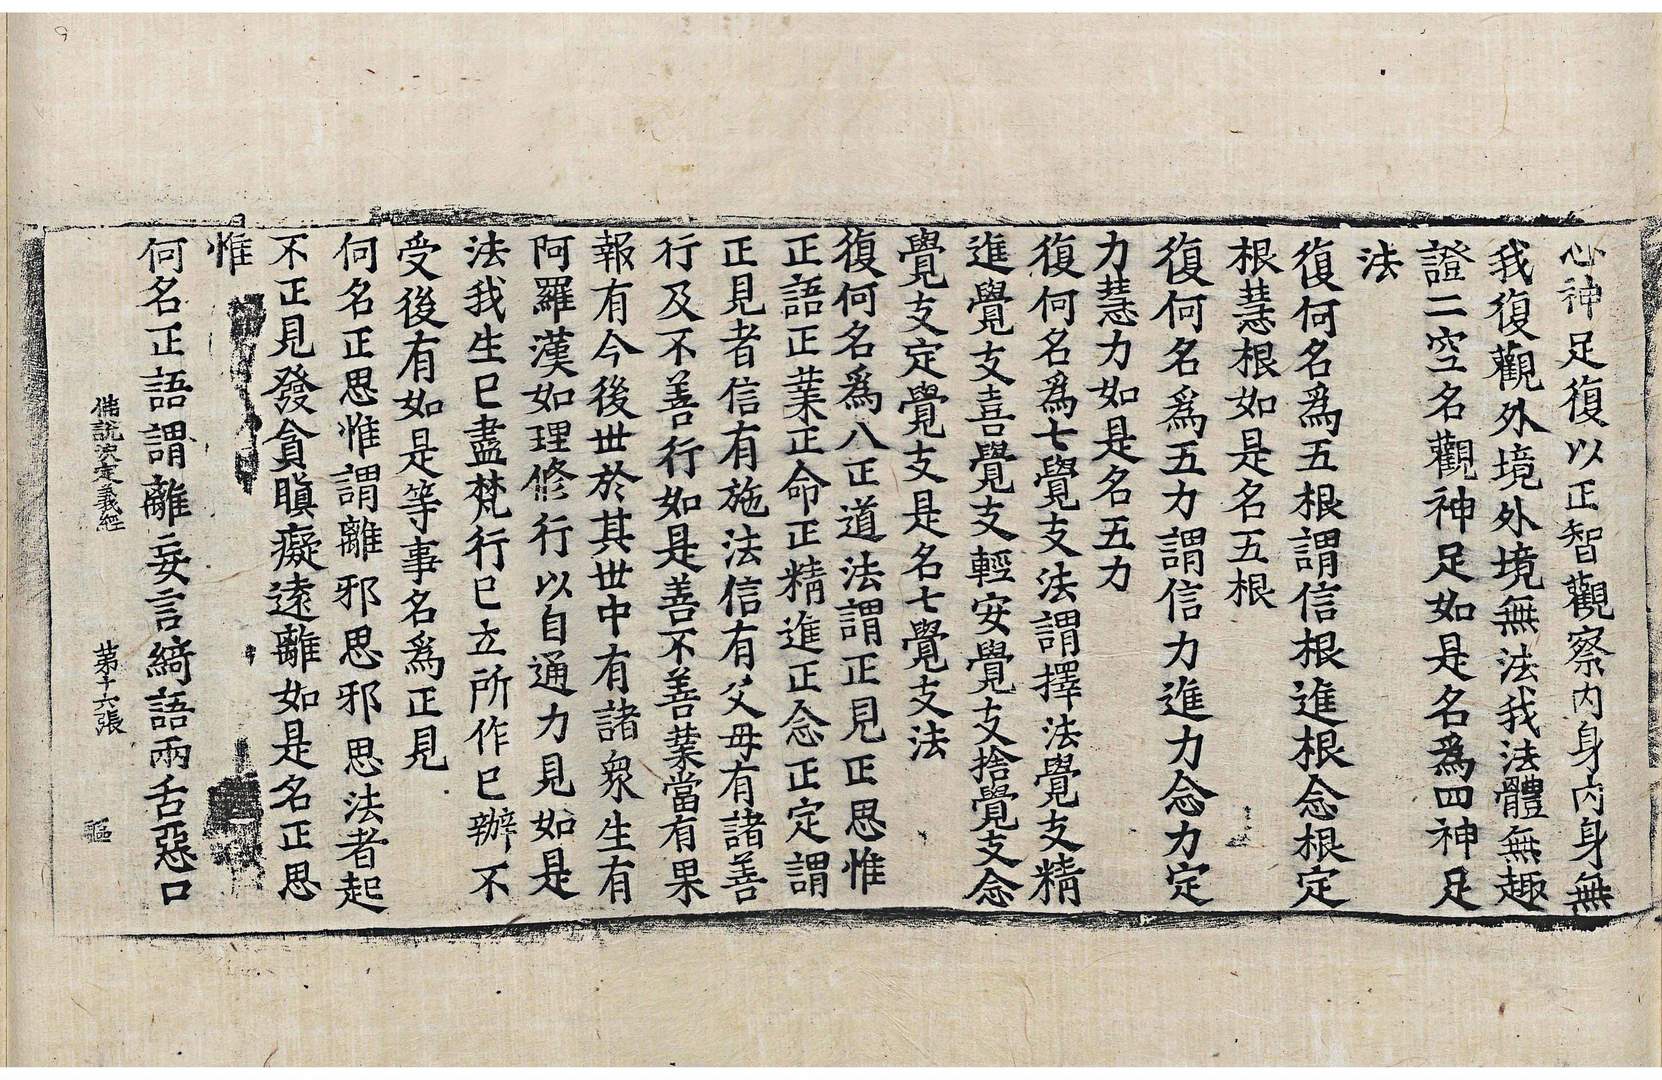 心神足復以正智觀察内身内身無
我復觀外境外境無法我法體無趣
證二空名觀神足如是名爲四神足
法
復何名爲五根謂信根進根念根定
根慧根如是名五根
復何名爲五力謂信力進力念力定
力慧力如是名五力
復何名爲七覺支法謂擇法覺支精
進覺支喜覺支輕安覺支捨覺支念
覺支定覺支是名七覺支法
復何名爲八正道法謂正見正思惟
正語正業正命正精進正念正定謂
正見者信有施法信有父母有諸善
行及不善行如是善不善業當有果
報有今後世於其世中有諸衆生有
阿羅漢如理修行以自通力見如是
法我生已盡梵行已立所作已辦不
受後有如是等事名爲正見
何名正思惟謂離邪思邪思法者起
不正見發貪瞋癡遠離如是名正思
惟
何名正語謂離妄言綺語兩舌惡口
佛說決定義經 第十六張